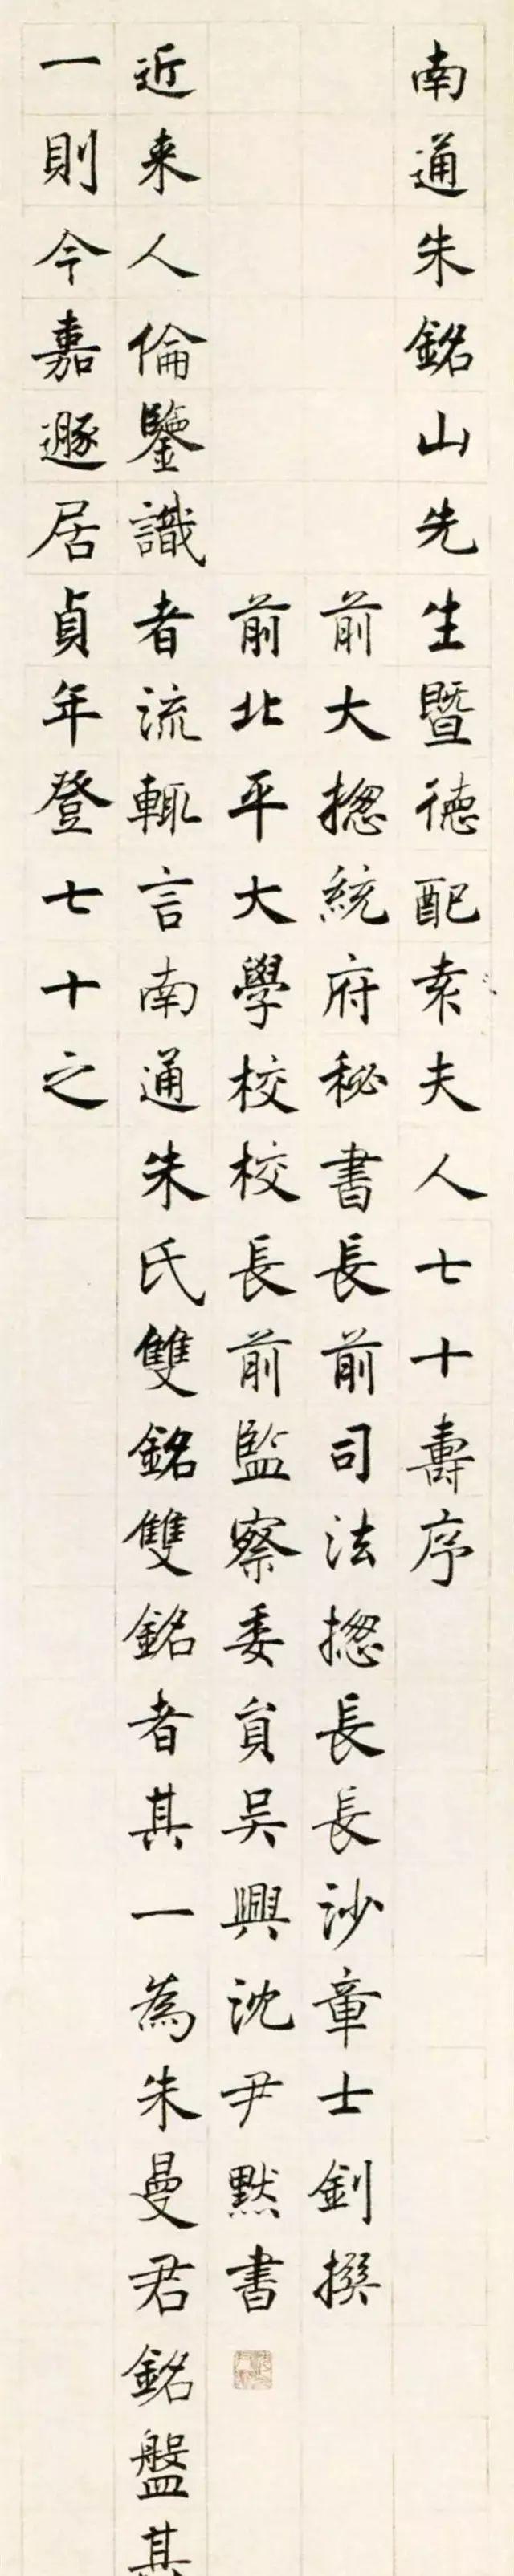 南通朱銘山先生暨德配袁夫人七十壽序
前大揔統府秘書長前司法揔長長沙章士釗撰
前北平大學校校長前監察委員吴興沈尹默書
近来人倫鑒識者流輒言南通朱氏雙銘雙銘者其一為朱曼君銘盤其
一則今嘉遯居貞年登七十之